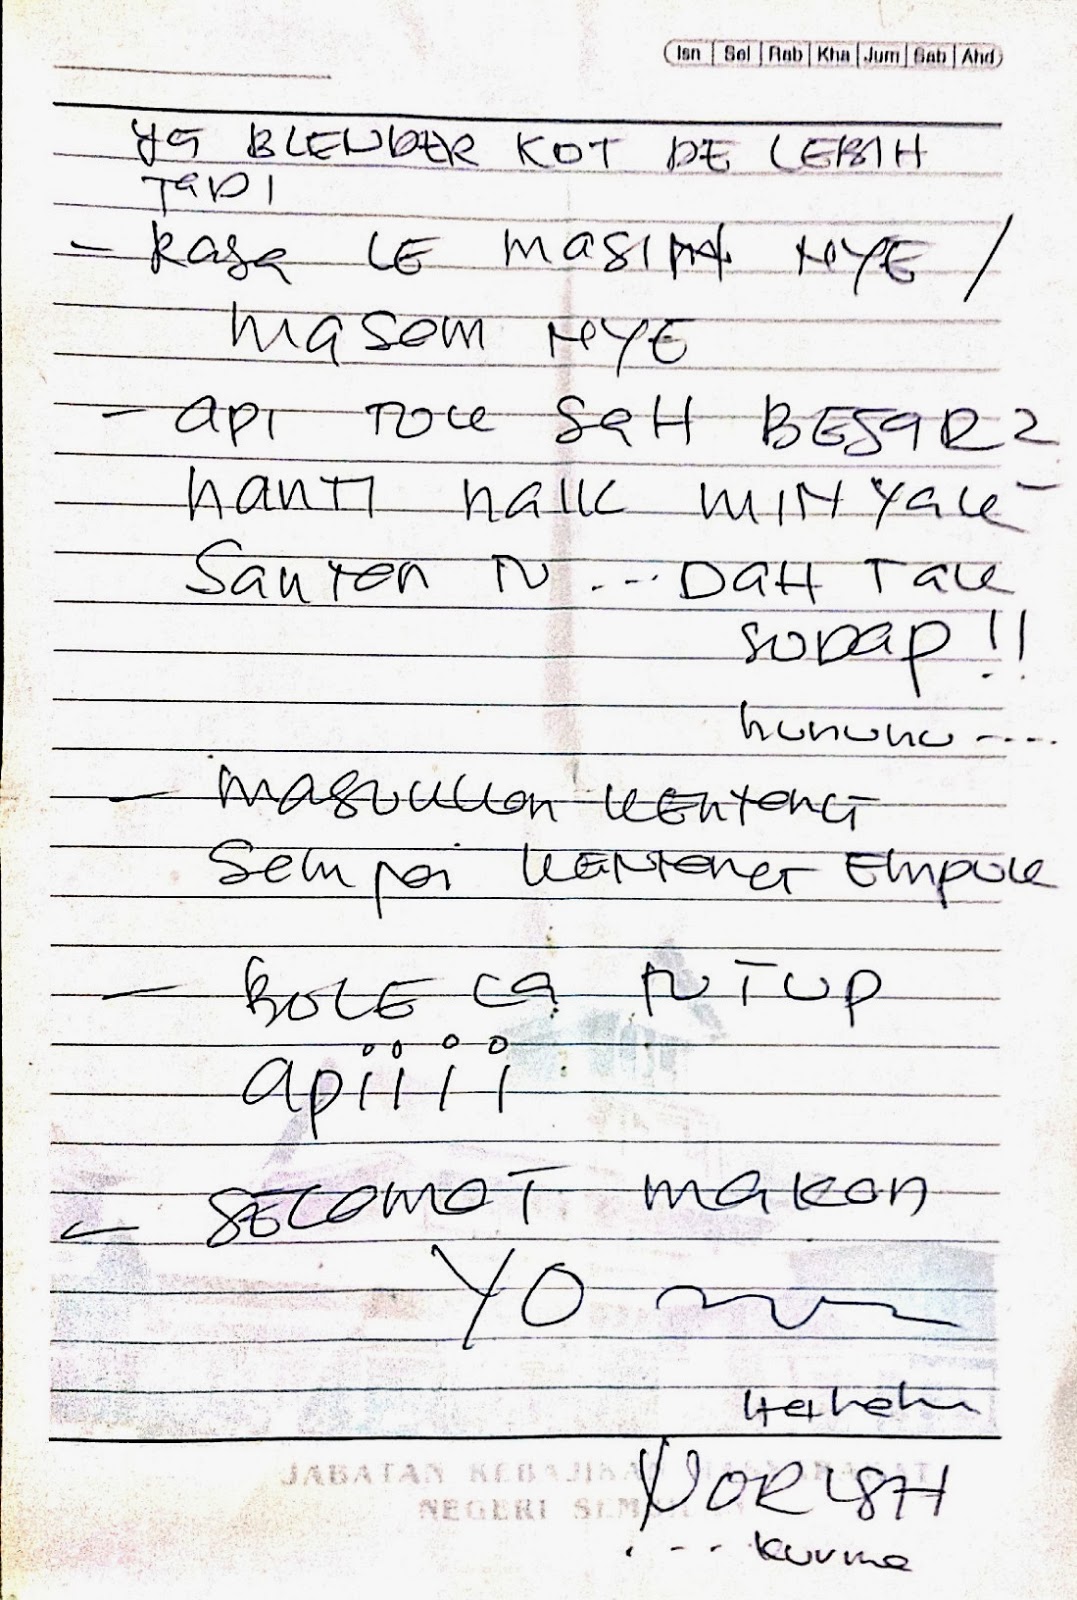 Isn Sel Rab Kha Jum Sab Ahd
YG BLENDER KOT DE LEBIH
TaDI
- Rasa LE masIN NYE /
masam NYE
- api TOK SaH BESAR2
NanTI NaIK MINYak -
Santen TU ... DaH Tak
SODap !!
hununu ----
- masukkan KENTANG
Sampai KENTANG Empuk
- BOLE La TUTUP
apiiii
- SELAMAT makan
YO
Hehehe
NORISH
JABATAN KEBAJIKAN MASYARAKAT
NEGERI SEM
... kurma